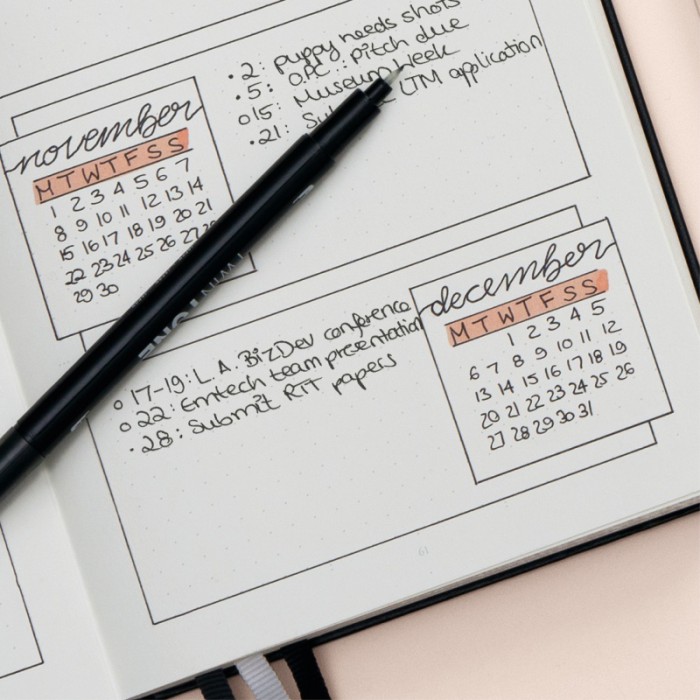 • 2: puppy needs shots
• 5: O.P.C.: Pitch due
o 15: Museum Week
• 21: LTM application
november
M T W T F S S
1 2 3 4 5 6 7
8 9 10 11 12 13 14
15 16 17 18 19 20 21
22 23 24 25 26 27
29 30
TWIN TONE
december
M T W T F S S
1 2 3 4 5
6 7 8 9 10 11 12
13 14 15 16 17 18 19
20 21 22 23 24 25 26
27 28 29 30 31
o 17-19: L.A. BizDev conference
o 22: Emtech team presentation
• 28: Submit RIT papers
61